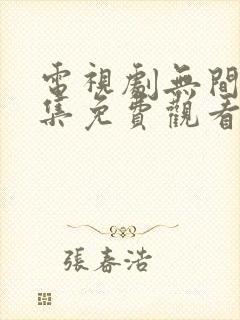 電視劇無間
集免費觀看
張春浩